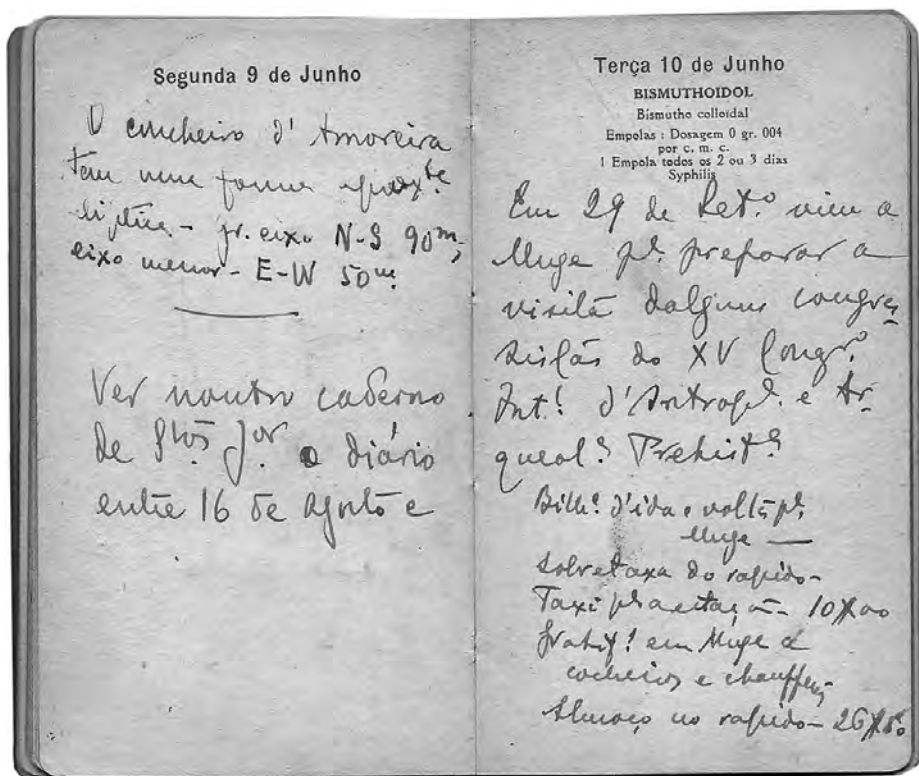 Segunda 9 de Junho
O concheiro d'Amoreira
tem uma forma aprox.te
liptica - gr. eixo N-S 90m,
eixo menor - E-W 50m.
Ver noutro caderno
de Stos Jor. o diário
entre 16 de Agosto e
Terça 10 de Junho
BISMUTHOIDOL
Bismutho colloidal
Empolas : Dosagem 0 gr. 004
por c. m. c.
1 Empola todos os 2 ou 3 dias
Syphilis
Em 29 de Set.o vim a
Muge p.a preparar a
visita dalguns congres
sistas do XV Congr.o
Int.l d'Antrop.a e Ar-
queol.a Prehist.a
Bilh.e d'ida e volta p.a
Muge —
Sobretaxa do rapido -
Taxi p.a estação - 10$00
Gratif. em Muge a
cocheiros e chauffeur -
Almoço no rapido -